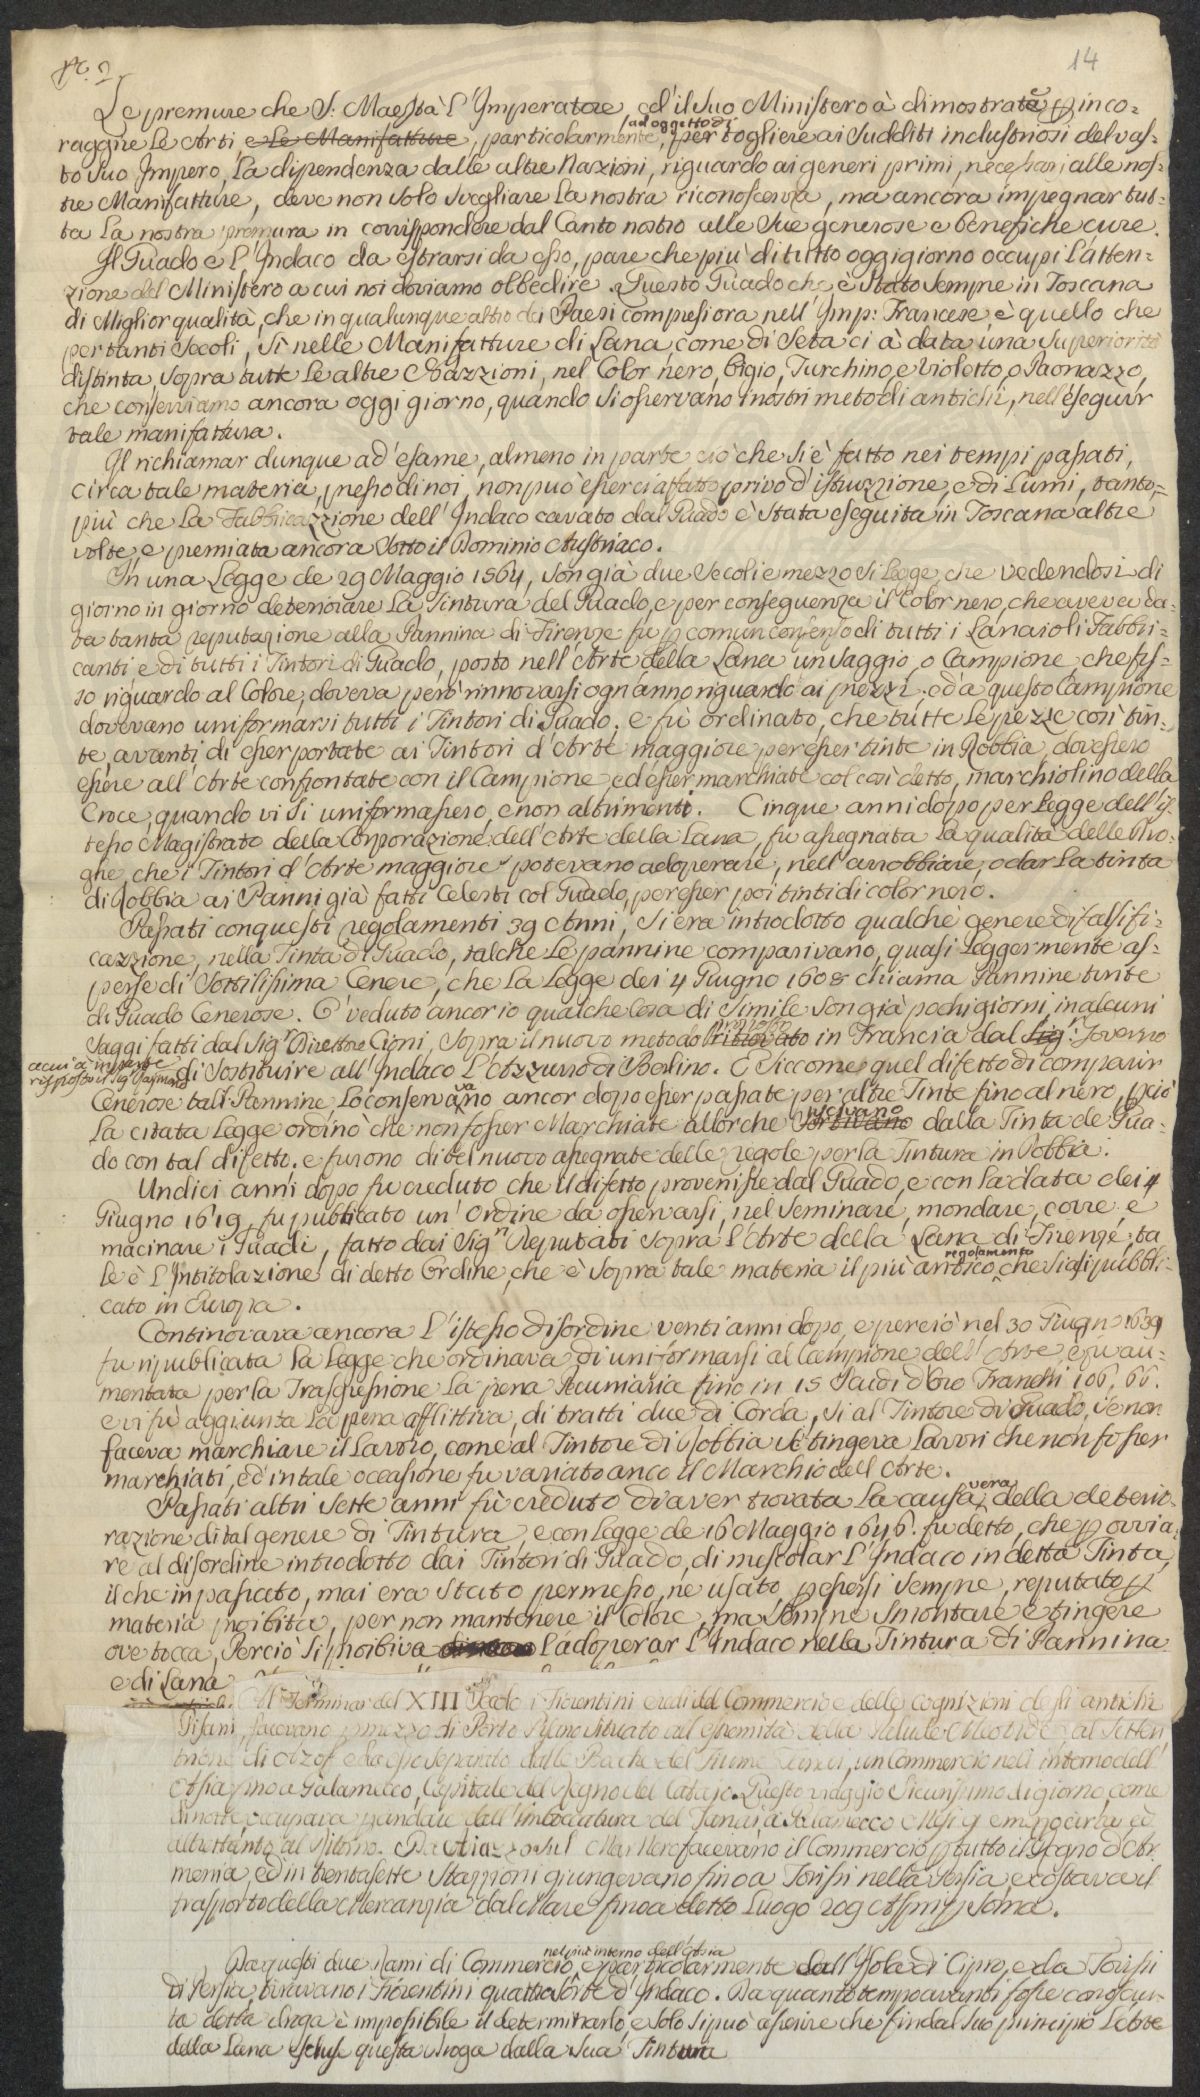 N.° 2
14
Le premure che S: Maestà l'Imperatore, ed il suo Ministero à dimostrate p inco-
raggire le Arti e Le Manifatture, particolarmente, ad oggetto di per togliere ai Sudditi industriosi del vas-
to suo Impero, la dipendenza dalle altre Nazioni, riguardo ai generi primi, necessari alle nos-
tre Manifatture, deve non solo svegliare la nostra riconoscenza, ma ancora impegnar tut-
ta la nostra premura in corrispondere dal Canto nostro alle Sue generose e benefiche cure.
Il Guado e l'Indaco da estrarsi da esso, pare che più di tutto oggigiorno occupi l'atten-
zione del Ministero a cui noi doviamo obbedire. Questo Guado che è stato sempre in Toscana
di Miglior qualità, che in qualunque altro dei Paesi compresi ora nell'Imp: Francese, è quello che
per tanti Secoli, sì nelle Manifatture di Lana, come di Seta ci à data una superiorità
distinta, sopra tutte le altre Nazzioni, nel Color nero, bigio, Turchino, e violetto, o Paonazzo,
che conserviamo ancora oggi giorno, quando si osservano i nostri metodi antichi, nell'eseguir
tale manifattura.
Il richiamar dunque ad esame, almeno in parte ciò che si è fatto nei tempi passati,
circa tale materia, presso di noi, non può esserci affatto privo d'istruzzione, e di Lumi, tanto
più che la Fabbricazzione dell'Indaco cavato dal Guado è stata eseguita in Toscana altre
volte, e premiata ancora sotto il Dominio Austriaco.
In una Legge de 29 Maggio 1564, son già due Secoli e mezzo si Legge, che vedendosi di
giorno in giorno deteriorare la Tintura del Guado, e per conseguenza il Color nero, che aveva da-
ta tanta reputazione alla Pannina di Firenze fu p comun consenso di tutti i Lanaioli Fabbri-
canti e di tutti i Tintori di Guado, posto nell'Arte della Lana un Saggio, o Campione, che fis-
so riguardo al Colore, doveva però rinnovarsi ogn'anno riguardo ai prezzi. ed a questo Campione
dovevano uniformarsi tutti i Tintori di Guado. e fù ordinato, che tutte le pezze così tin-
te, avanti di esser portate ai Tintori d'Arte maggiore per esser tinte in Robbia, dovessero
essere all'Arte confrontate con il Campione, ed esser marchiate col così detto, marchiolino della
Croce, quando vi si uniformassero, e non altrimenti. Cinque anni dopo per Legge dell'is-
tesso Magistrato della Corporazione dell'Arte della Lana, fu assegnata la qualità delle Dro-
ghe, che i Tintori d'Arte maggiore potevano adoperare, nell'arrobbiare, o dar la tinta
di Robbia ai Panni già fatti Celesti col Guado, per esser poi tinti di color nero.
Passati con questi regolamenti 39 Anni, si era introdotto qualche genere di falsifi-
cazzione, nella Tinta di Guado, talche le pannine comparivano, quasi leggermente as-
perse di sottilissima Cenere, che la Legge dei 4 Giugno 1608 chiama Pannine tinte
di Guado Cenerose. E' veduto ancor io qualche cosa di simile son già pochi giorni, in alcuni
Saggi fatti dal Sig.r Direttore Cioni, sopra il nuovo metodo ritrovato in Francia dal Sig: Governo
a cui à in parte
risposto il Sig Raymond
di sostituire all'Indaco l'Azzurro di Berlino. E siccome quel difetto di comparir
Cenerose tali Pannine, lo conservavano ancor dopo esser passate per altre Tinte fino al nero, pciò
la citata Legge ordinò che non fosser Marchiate allorche uscivano sortivano dalla Tinta de Gua-
do con tal difetto. e furono di bel nuovo assegnate delle regole per la Tintura in Robbia.
Undici anni dopo fu creduto che il difetto provenisse dal Guado, e con la data dei 4
Giugno 1619, fu pubblicato un'Ordine da osservarsi, nel seminare, mondare, corre, e
macinare i Guadi, fatto dai Sig.ri Deputati sopra l'Arte della Lana di Firenze; ta-
le è l'Intitolazione di detto Ordine, che è sopra tale materia il più antico regolamento che siasi pubbli-
cato in Europa.
Continovava ancora l'istesso disordine venti anni dopo, e perciò nel 30 Giugno 1639
fu ripubblicata la Legge che ordinava, di uniformarsi al Campione dell'Arte, e fù au-
mentata per la Trasgressione la pena Pecuniaria fino in 15 Scudi d'Oro Franchi 106,66.
e vi fù aggiunta la pena afflittiva, di tratti due di Corda, sì al Tintore di Guado, se non
faceva marchiare il Lavoro, come al Tintore di Robbia se tingeva Lavori che non fosser
marchiati, ed in tale occasione fu variato anco il Marchio dell'Arte.
Passati altri sette anni fù creduto d'aver trovata la causa vera della deterio-
razione di tal genere di Tintura, e con Legge de 16 Maggio 1646. fu detto, che p ovvia-
re al disordine introdotto dai Tintori di Guado, di mescolar l'Indaco in detta Tinta,
il che in passato, mai era stato permesso, ne usato, p essersi sempre, reputato p
materia proibita, per non mantenere il Colore, ma sempre smontare e tingere
ove tocca, Perciò si proibiva l'adoperar l'Indaco nella Tintura di Pannina
e di Lana
Al Terminar del XIII Secolo i Fiorentini eredi del Commercio e delle cognizioni degli antichi
Pisani, facevano p mezzo di Porto Pisano situato all'estremità della Palude Meotide, al Setten-
trione di Azof e da esso separato dalle Bocche del Fiume Tanai, un Commercio nell'interno dell'
Asia fino a Galamecco, Capitale del Regno del Catajo. Questo viaggio sicurissimo di giorno, come
di notte occupava p andare dall'imboccatura del Tanai a Galamecco Mesi 9 e mezzo circa ed
altrettanto al Ritorno. Da Aiazzo sul Mar Nero facevano il Commercio p tutto il Regno d'Ar-
menia, ed in trentasette Stazzioni giungevano fino a Torissi nella Persia, e costava il
trasporto della Mercanzia dal Mare fino a detto Luogo 209 Aspri p Soma.
Da questi due Rami di Commercio, nel più interno dell'Asia e particolarmente dall'Isola di Cipro, e da Torissi
di Persia, tiravano i Fiorentini quattro sorte d'Indaco. Da quanto tempo avanti fosse conosciu-
ta detta droga è impossibile il determinarlo, e solo si può asserire che fin dal suo principio l'Arte
della Lana escluse questa droga dalla sua Tintura